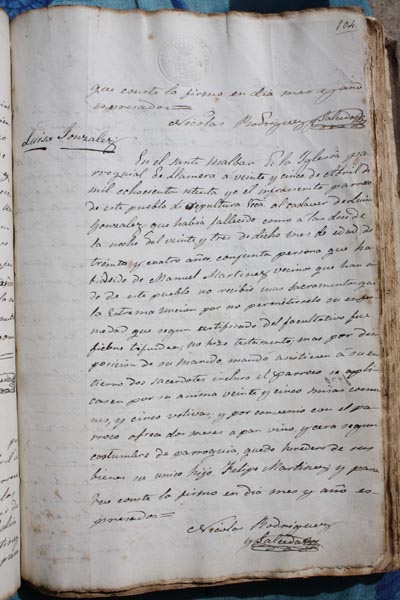 104.
que conste lo firmo en dia mes y año
espresados =
Nicolas Rodriguez y Salcedo
Luisa Gonzalez
En el Iglesia par-
roquial de Llamera a veinte y cinco de Abril de
mil ochocientos setenta yo el infrascrito parroco
de este pueblo di sepultura Ecca al cadaver de Luisa
Gonzalez que habia fallecido como a las doce de
la noche del veinte y tres de dicho mes de edad de
treinta y cuatro años, conjunta persona que ha
bia sido de Manuel Martinez vecinos que han si
do de este pueblo no recibio mas Sacramento que
la Estrema uncion por no permitirselo su enfer
medad que segun certificado del facultativo fue
fiebre tifoidea, no hizo testamento, mas por dis
posicion de su marido, mando asistiesen a su en
tierro dos sacerdotes incluso el Parroco se apli
casen por su anima veinte y cinco misas comu
nes, y cinco votivas, y por convenio con el par
roco ofrea dos meses a pan vino, y cera segun
costumbre de parroquia, quedo heredero de sus
bienes su unico hijo Felipe Martinez y para
que conste lo firmo en dia mes y año es
presados =
Nicolas Rodriguez
y Salcedo